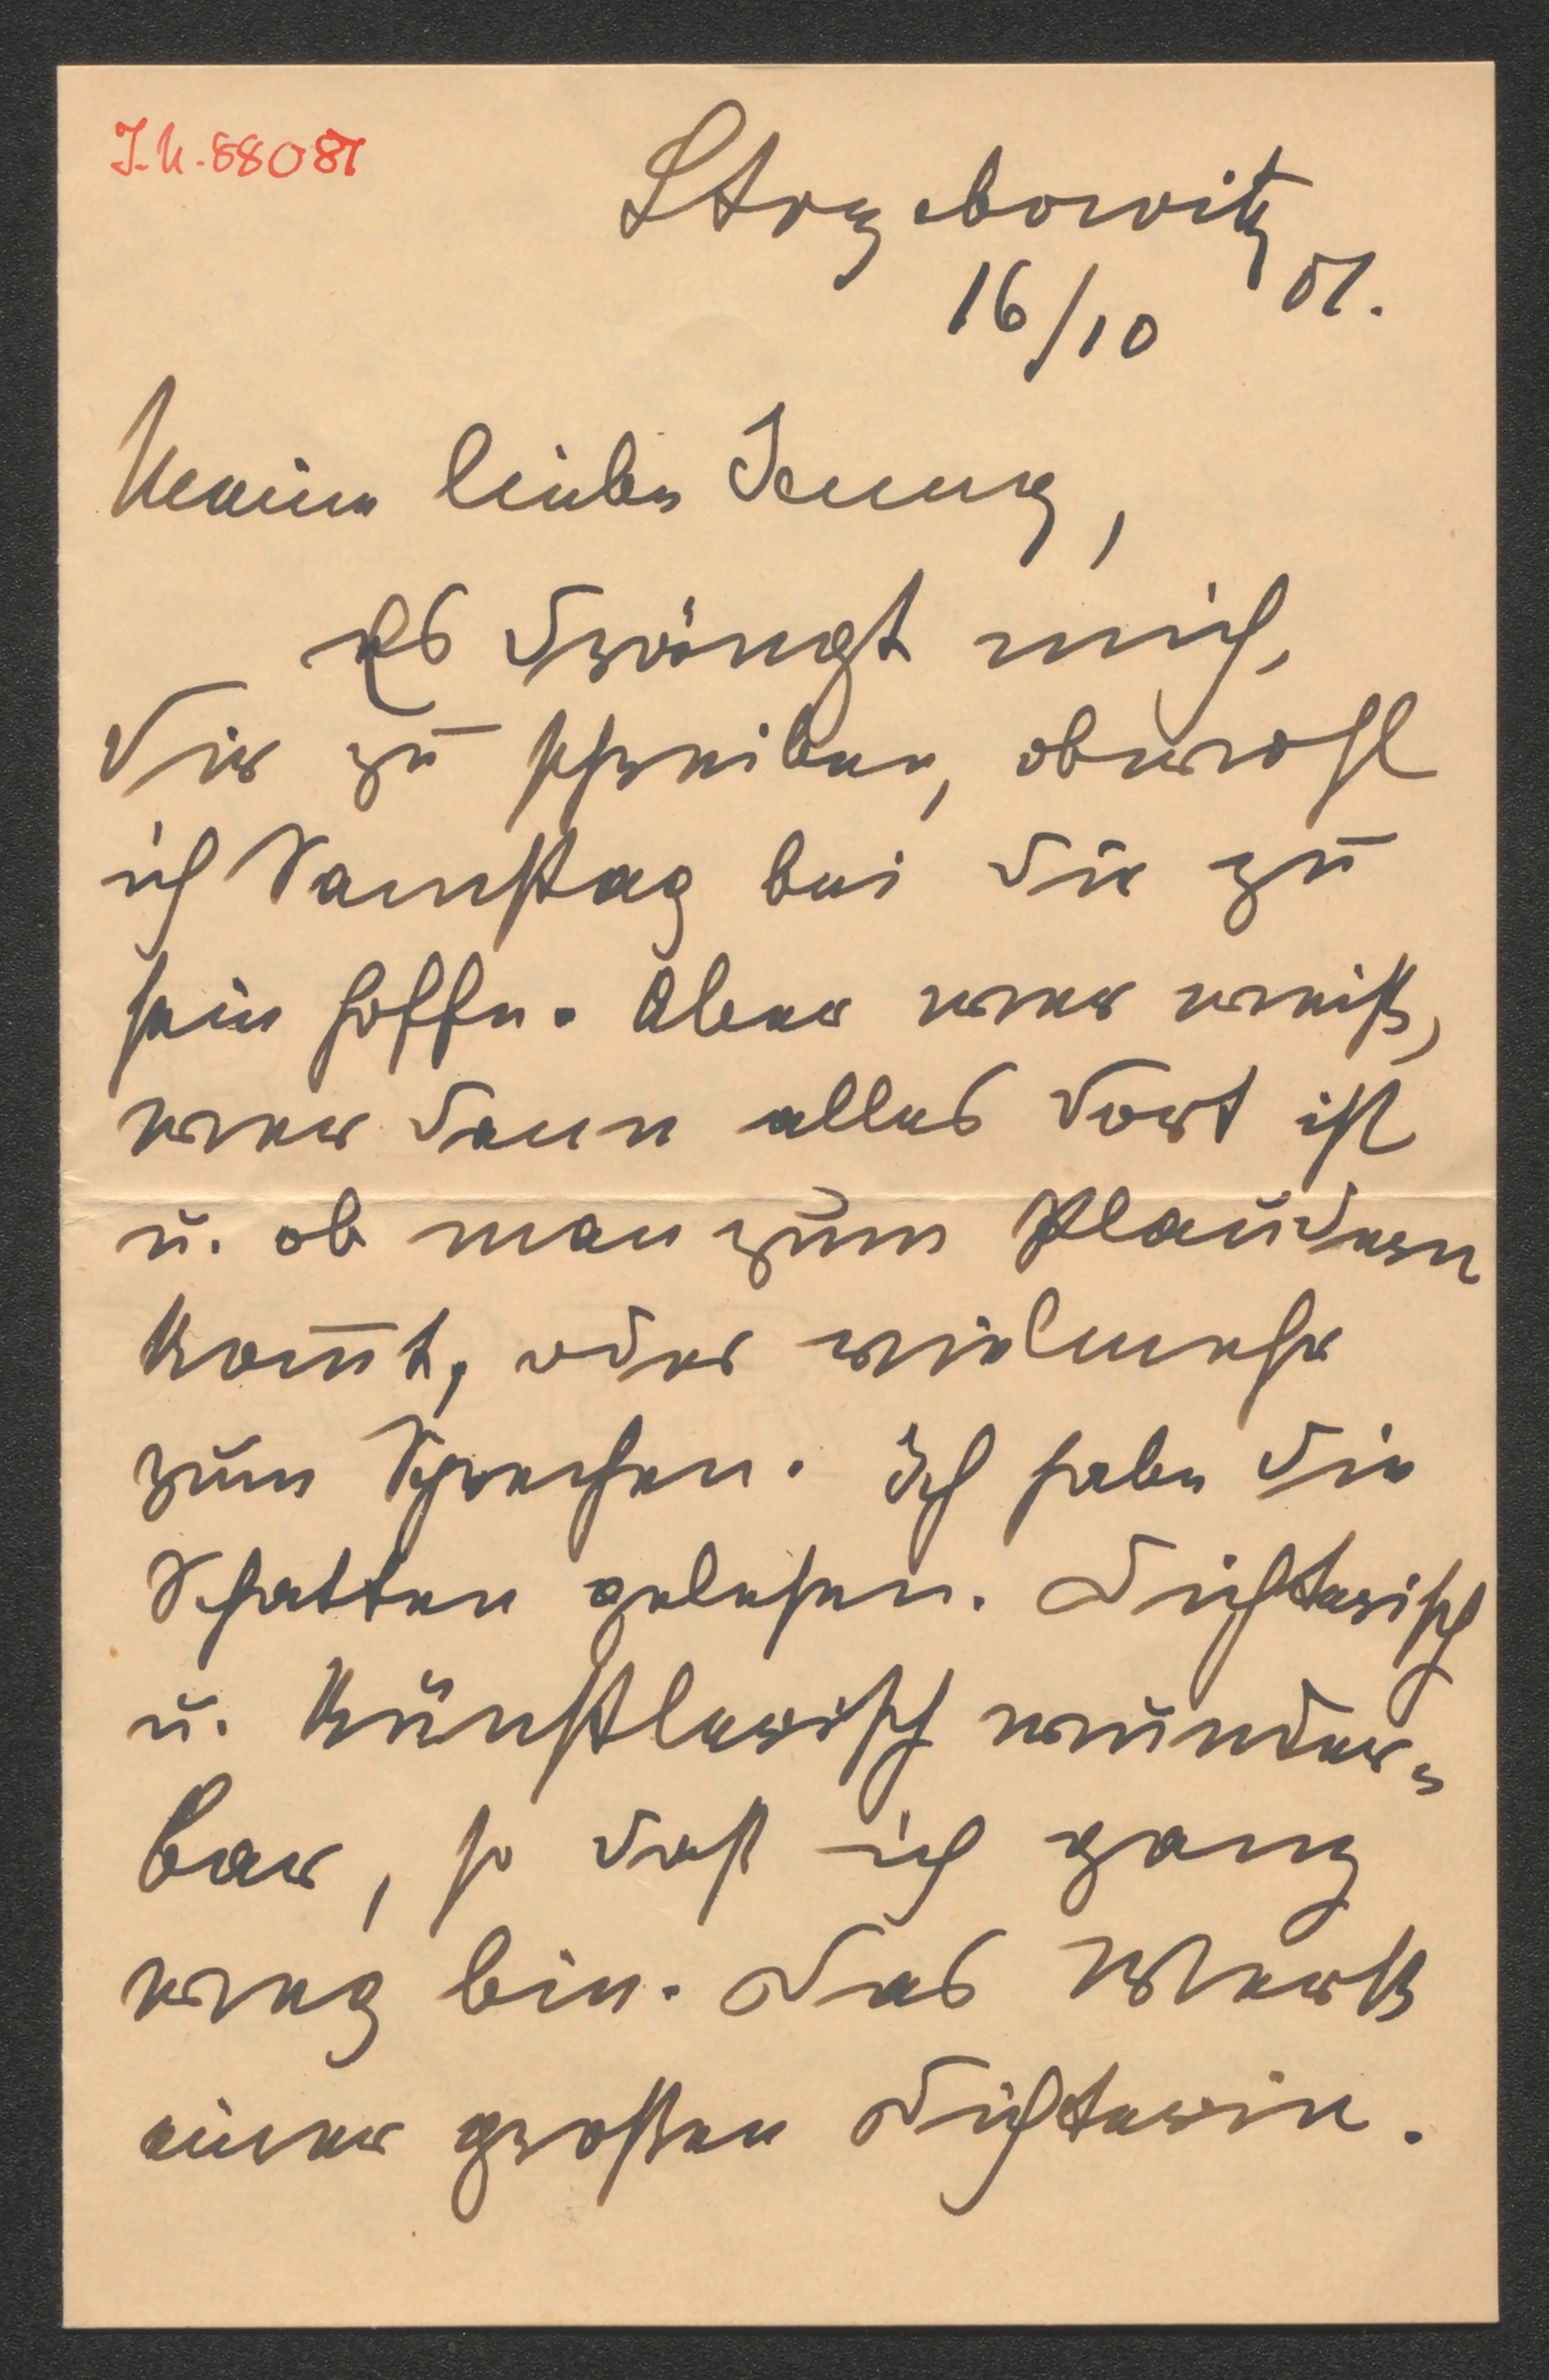 I.N. 88081
Strzebowitz
16/10 01.
Meine liebe Jenny,
Es drängt mich,
Dir zu schreiben, obwohl
ich Samstag bei Dir zu
sein hoffe. Aber wer weiß,
wer dann alles dort ist
u. ob man zum Plaudern
kom̅t, oder vielmehr
zum Sprechen. Ich habe die
Schatten gelesen. Dichterisch
u. künstlerisch wunder-
bar, so daß ich ganz
weg bin. Das Werk
einer großen Dichterin.